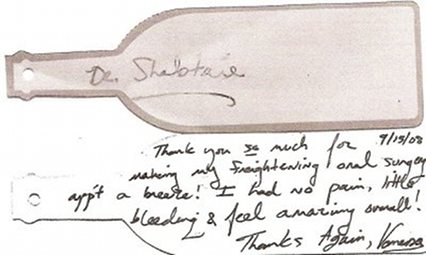 Dr. Shabtaie
9/15/08
Thank you so much for
making my freightening oral surgery
app't a breeze! I had no pain, little
bleeding & feel amazing overall!
Thanks Again, Vanessa